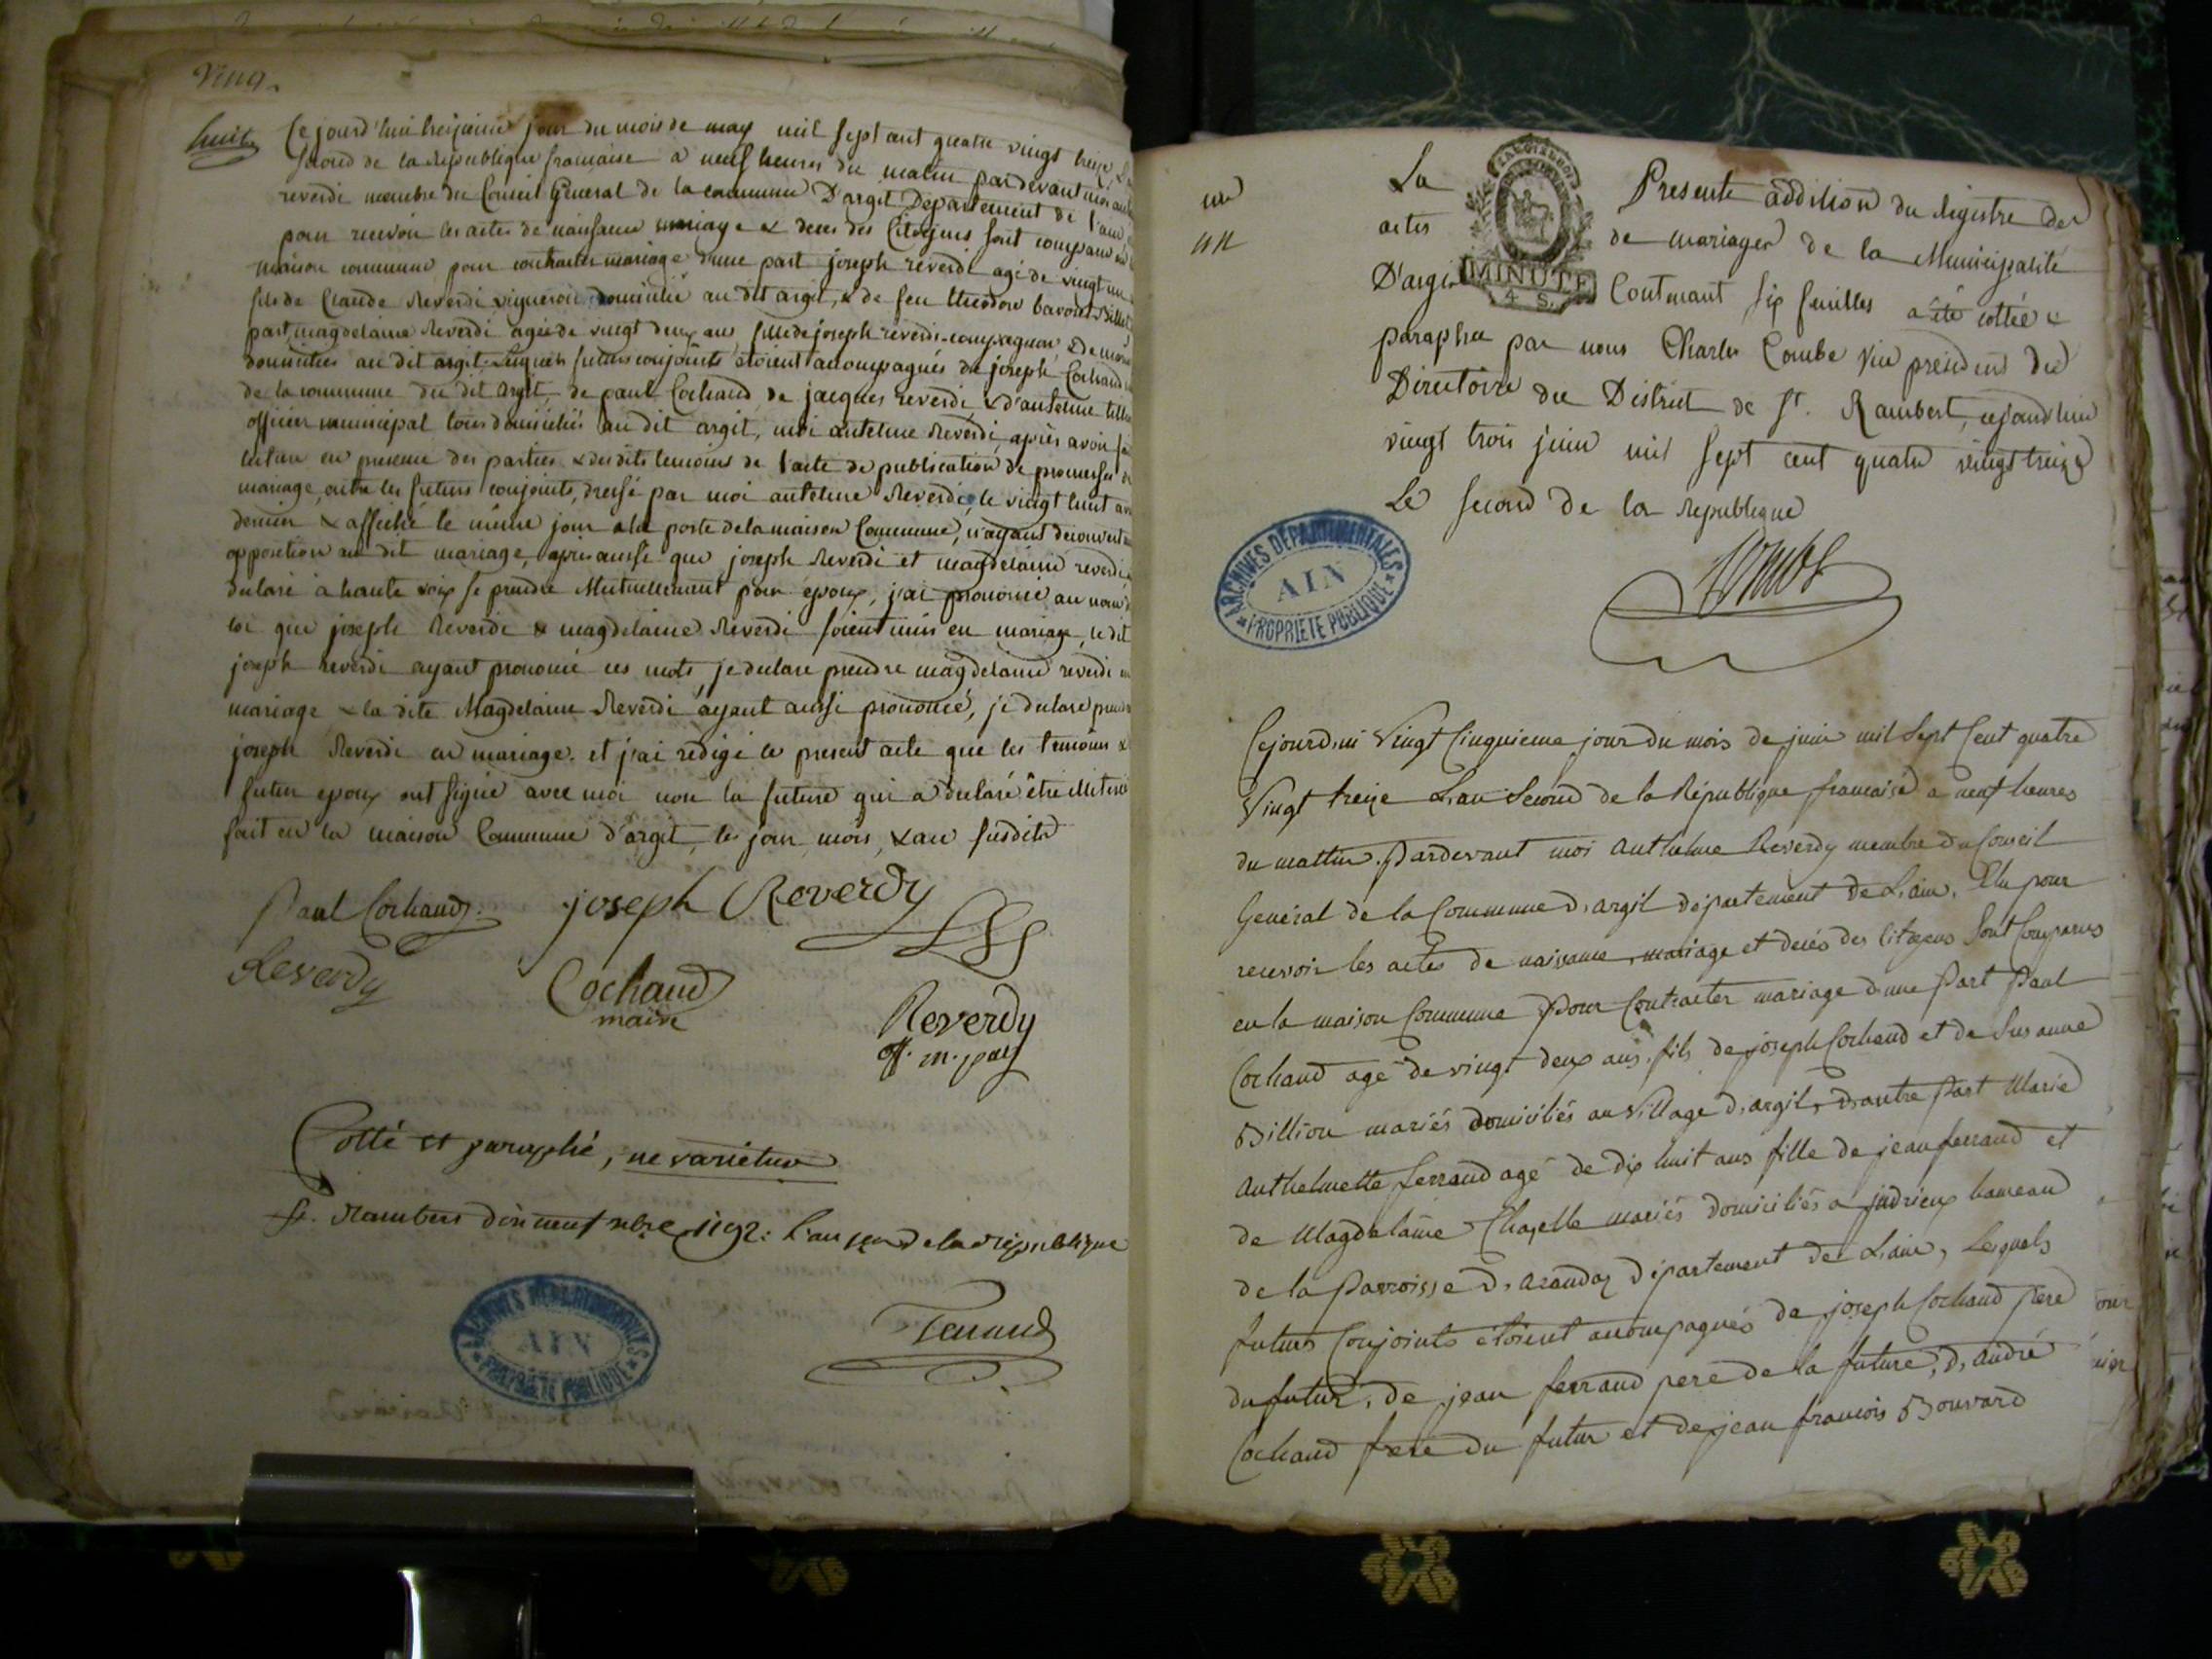 huit
Cejourd'hui treizieme jour du mois de may mil sept cent quatre vingt treize
second de la republique francaise a neuf heures du matin pardevant moi
reverdi membre du Conseil General de la commune D'argit Departement de l'ain
pour recevoir les actes de naissance mariage & deces des Citoyens sont comparu en
maison commune pour contracter mariage d'une part joseph reverdi agé de vingt un
fils de Claude Reverdi vigneron domicilié au dit argit, & de feu
part, magdelaine Reverdi agée de vingt deux ans fille de joseph reverdi
domiciliés au dit argit. Lesquels futurs conjoints etoient accompagnés de joseph Cochand
de la commune du dit argit, de paul Cochand, de jacques reverdi, & d'antelme
officier municipal tous domiciliés au dit argit, moi antelme Reverdi, après avoir
lecture en presence des parties & desdits temoins de l'acte de publication de promesses de
mariage, entre les futurs conjoints, dressé par moi antelme Reverdi, le vingt huit
dernier & affiché le même jour a la porte de la maison Commune, n'ayant decouvert
opposition au dit mariage, après aussi que joseph Reverdi et magdelaine reverdi
declaré à haute voix se prendre Mutuellement pour epoux, j'ai prononcé au nom
loi que joseph Reverdi & magdelaine Reverdi soient unis en mariage, le dit
joseph Reverdi ayant prononcé ces mots, je declare prendre magdelaine reverdi en
mariage & la dite Magdelaine Reverdi ayant aussi prononcé, je declare prendre
joseph Reverdi en mariage. et j'ai redigé le present acte que les temoins &
futur epoux ont signé avec moi non la future qui a declaré être
fait en la maison Commune d'argit, les jour, mois, & an susdits
Paul Cochand. joseph Reverdy
Reverdy Cochand
maire
Reverdy
off. m.pal
Cotté et paraphé, ne varietur
St. Rambert 1792. l'an 1er de la république
ARCHIVES DÉPARTEMENTALES
AIN
PROPRIÉTÉ PUBLIQUE
un
La Presente addition du Registre des
actes de mariages de la Municipalité
D'argit Contenant six feuilles a été cottée &
MINUTE
4 S.
paraphée par nous Charles Combe vice president du
Directoire du District de St. Rambert, cejourd'hui
vingt trois juin mil sept cent quatre vingt treize
Le second de la Republique
Combe
ARCHIVES DÉPARTEMENTALES
AIN
PROPRIÉTÉ PUBLIQUE
Cejourdhui Vingt Cinquieme jour du mois de juin mil Sept Cent quatre
Vingt treize L'an Second de la République francaise a neuf heures
du mattin. Pardevant moi Anthelme Reverdy membre du Conseil
Général de la Commune d'argit département de L'ain, Elu pour
recevoir les actes de naissance, mariage et decés des Citoyens Sont Comparus
en la maison Commune Pour Contracter mariage d'une Part Paul
Cochand agé de vingt deux ans, fils de joseph Cochand et de Susanne
Billion mariés domiciliés au Village d'argit, d'autre Part Marie
Anthelmette ferrand agé de dix huit ans fille de jean ferrand et
de Magdelaine Chapelle mariés domiciliés a judrieux hameau
de la Parroisse d'arandas département de L'ain, Lesquels
futurs Conjoints étoient accompagnés de joseph Cochand Pere
du futur, de jean ferrand pere de la future, d'andré
Cochand frere du futur et de jean francois Bouvard